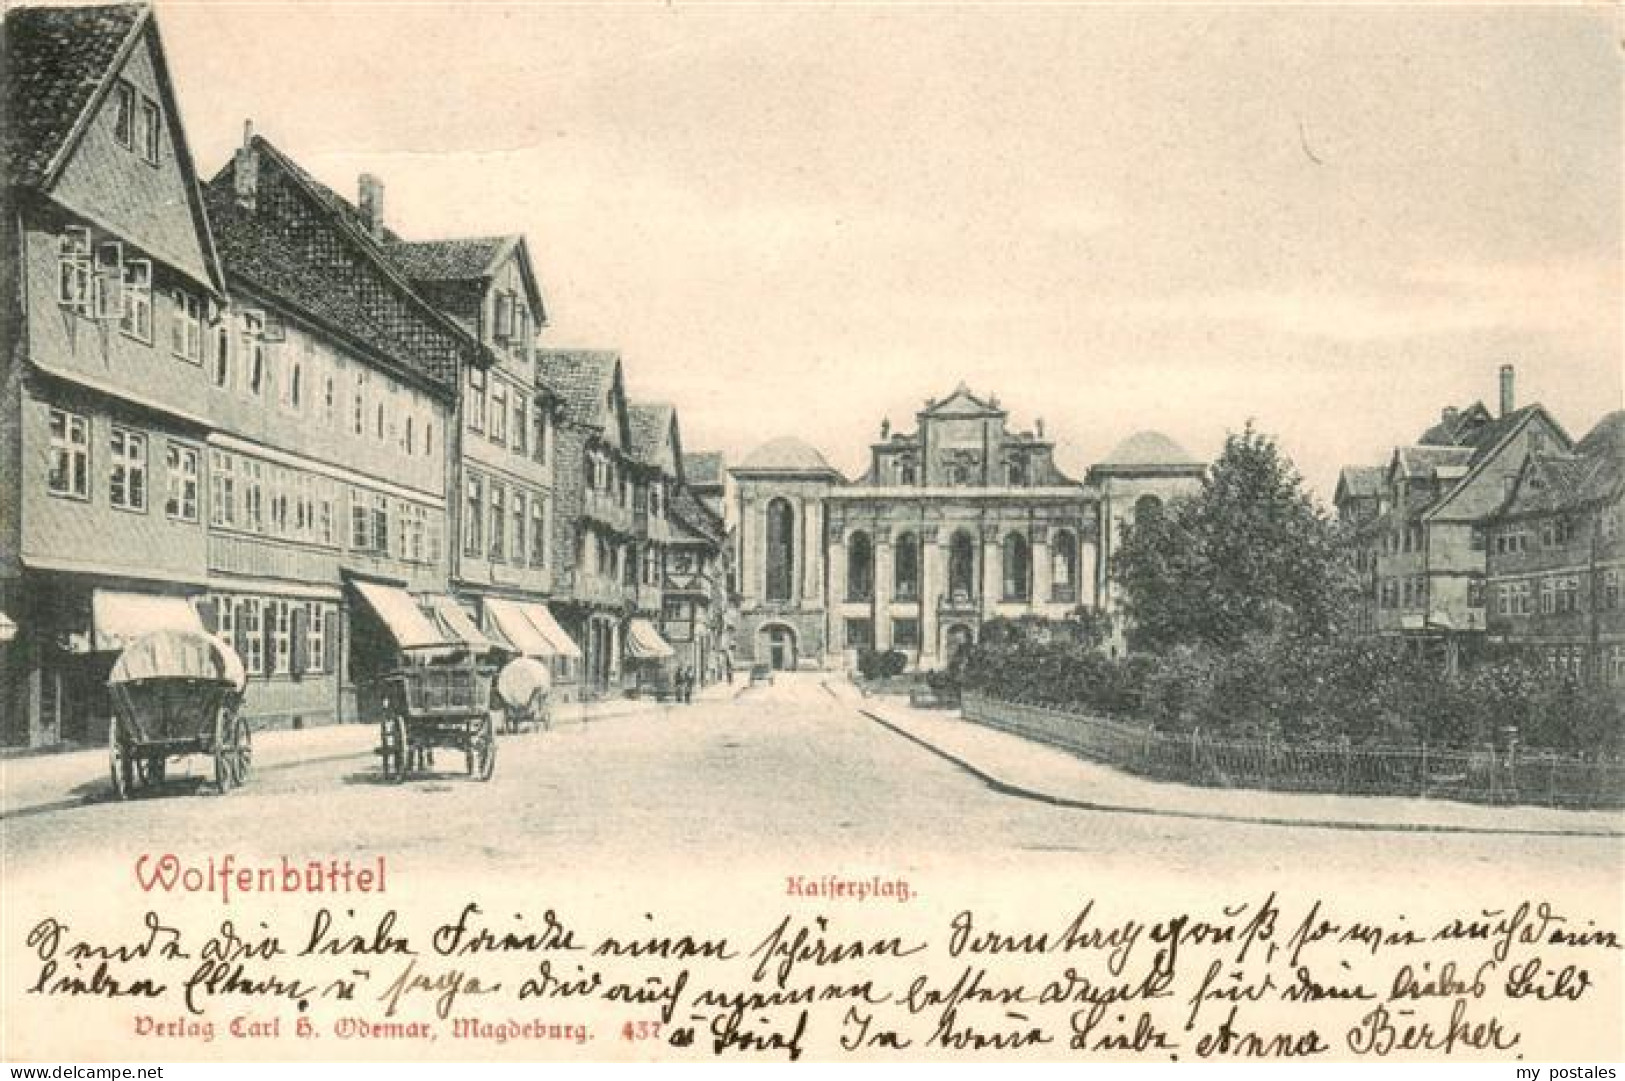 Wolfenbüttel
Kaiserplatz.
Sende dir liebe Friede einen schönen Sonntagsgruß, so wie auch deine
lieben Eltern, u sage dir auch meinen besten Dank für dein liebes Bild
Verlag Carl H. Odemar, Magdeburg. 437
u Brief, In treue Liebe. Anna Berker.
my postales